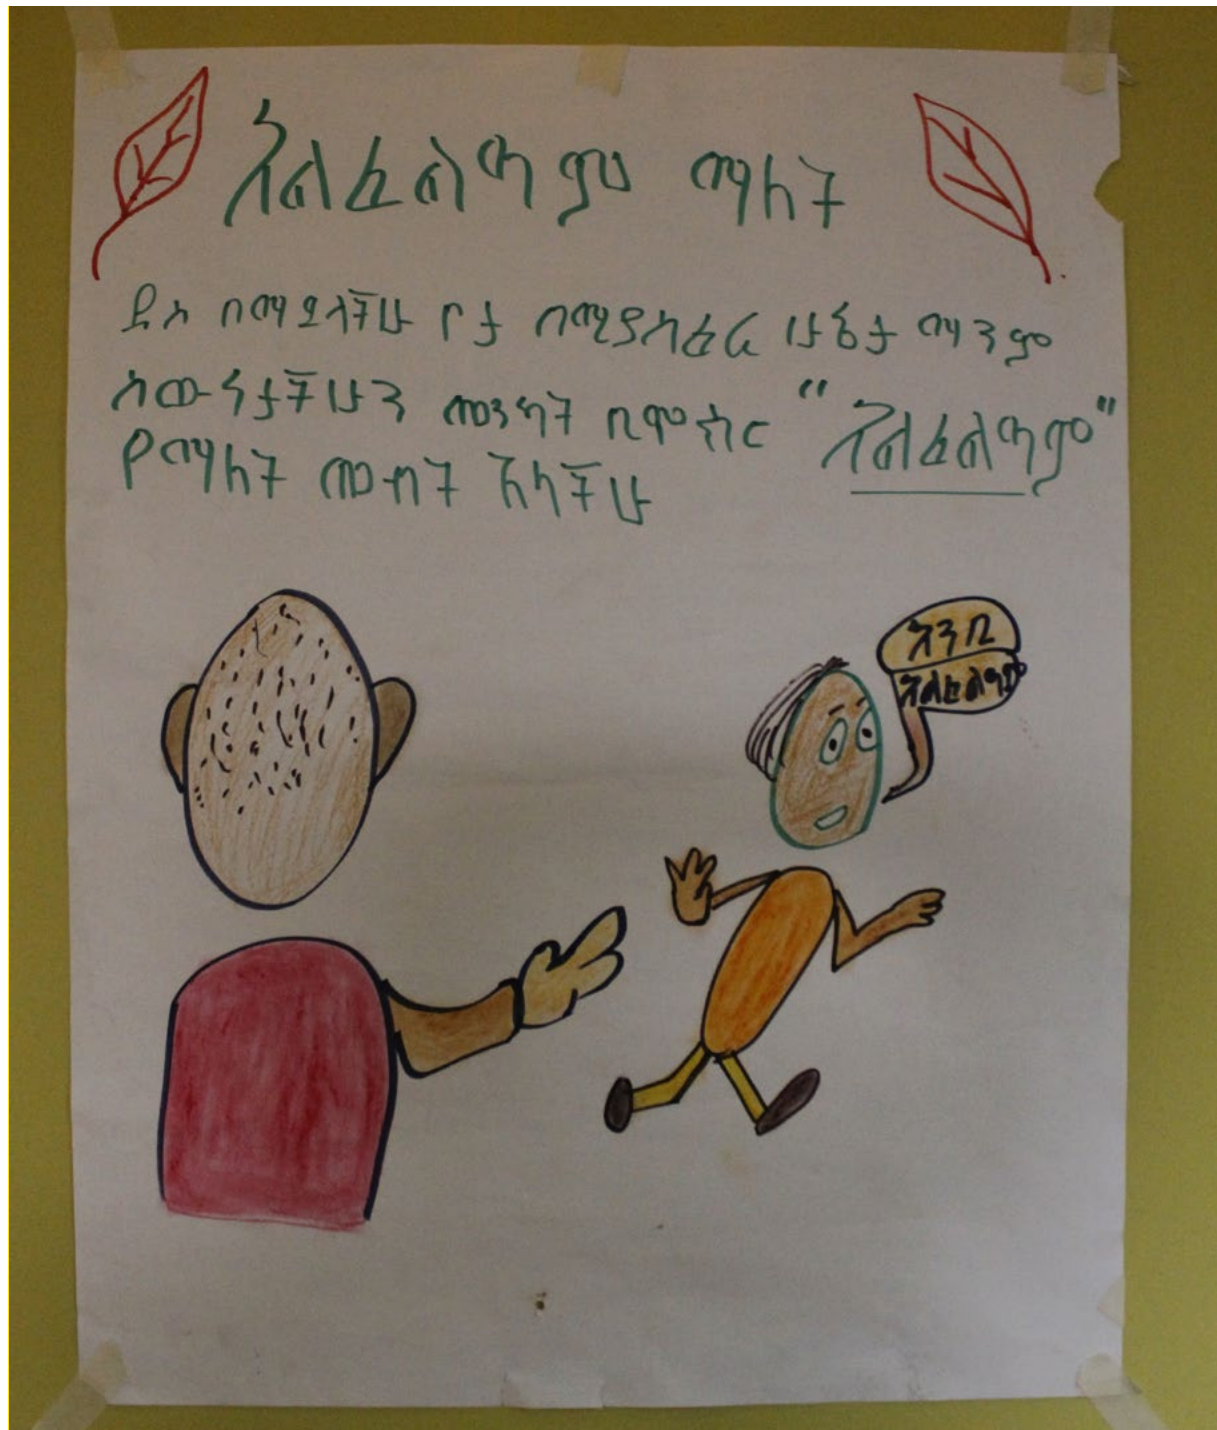 አልፈልግም ማለት
ደስ በማይላችሁ ቦታ በሚያስፈራ ሁኔታ ማንም
ሰውነታችሁን መንካት ቢሞክር "አልፈልግም"
የማለት መብት አላችሁ
እንቢ
አልፈልግም